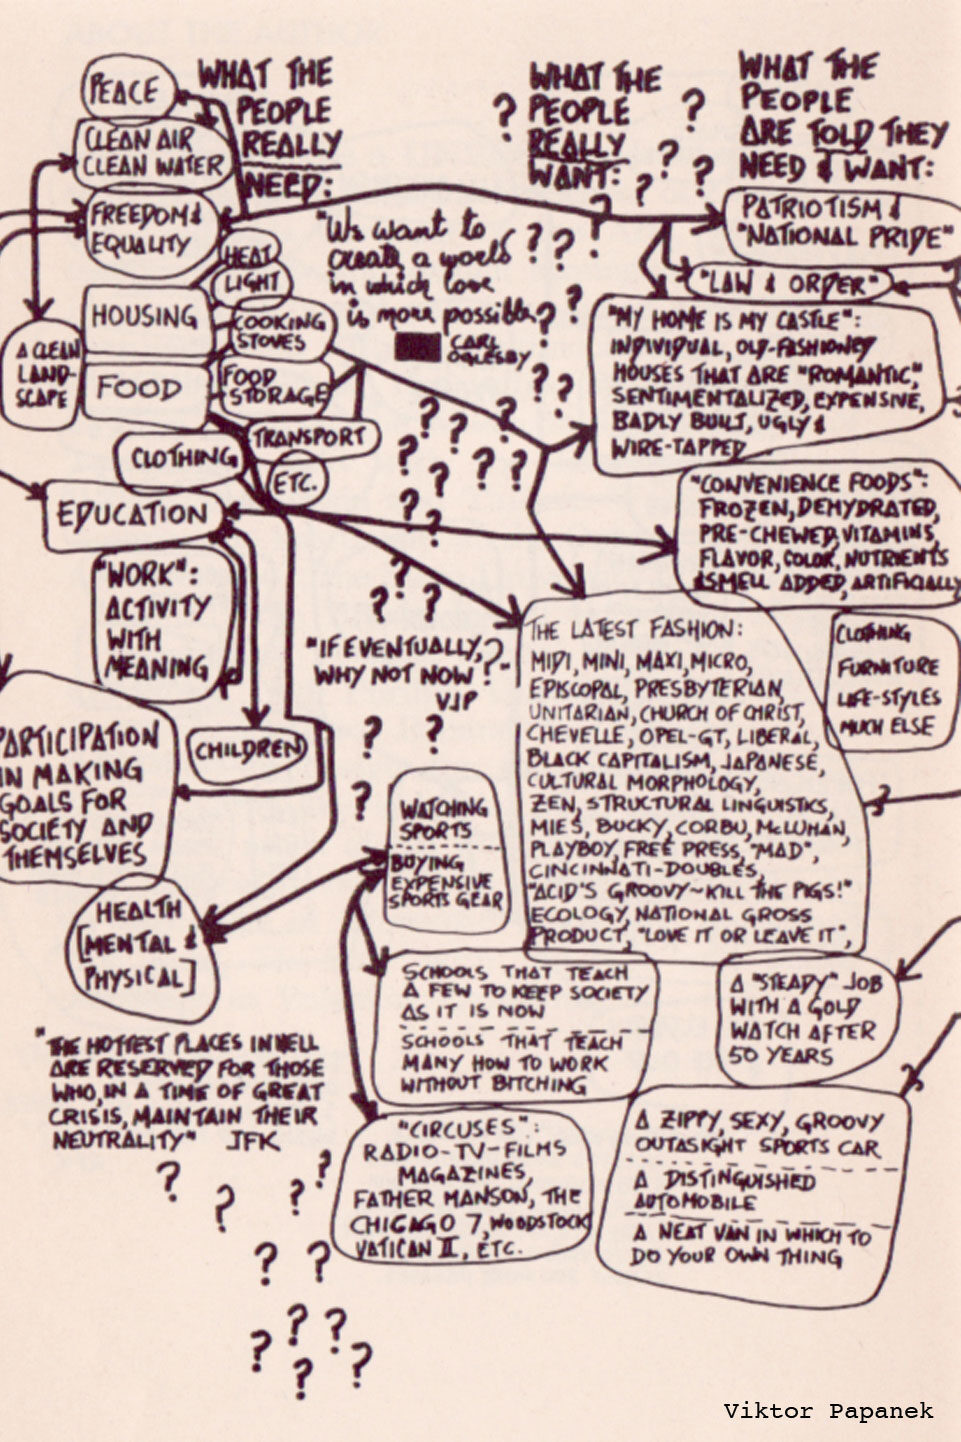 WHAT THE
PEOPLE
REALLY
NEED:
PEACE
CLEAN AIR
CLEAN WATER
FREEDOM &
EQUALITY
HEAT
LIGHT
HOUSING
COOKING
STOVES
A CLEAN
LAND-
SCAPE
FOOD
FOOD
STORAGE
TRANSPORT
CLOTHING
ETC.
EDUCATION
"WORK":
ACTIVITY
WITH
MEANING
CHILDREN
PARTICIPATION
IN MAKING
GOALS FOR
SOCIETY AND
THEMSELVES
HEALTH
[MENTAL &
PHYSICAL]
"THE HOTTEST PLACES IN HELL
ARE RESERVED FOR THOSE
WHO, IN A TIME OF GREAT
CRISIS, MAINTAIN THEIR
NEUTRALITY" JFK
WHAT THE
PEOPLE
REALLY
WANT:
"We want to
create a world
in which love
is more possible
CARL
OGLESBY
"IF EVENTUALLY,
WHY NOT NOW?"
VJP
WATCHING
SPORTS
BUYING
EXPENSIVE
SPORTS GEAR
SCHOOLS THAT TEACH
A FEW TO KEEP SOCIETY
AS IT IS NOW
SCHOOLS THAT TEACH
MANY HOW TO WORK
WITHOUT BITCHING
"CIRCUSES":
RADIO-TV-FILMS
MAGAZINES,
FATHER MANSON, THE
CHICAGO 7, WOODSTOCK
VATICAN II, ETC.
WHAT THE
PEOPLE
ARE TOLD THEY
NEED & WANT:
PATRIOTISM &
"NATIONAL PRIDE"
"LAW & ORDER"
"MY HOME IS MY CASTLE":
INDIVIDUAL, OLD-FASHIONED
HOUSES THAT ARE "ROMANTIC",
SENTIMENTALIZED, EXPENSIVE,
BADLY BUILT, UGLY &
WIRE-TAPPED
"CONVENIENCE FOODS":
FROZEN, DEHYDRATED,
PRE-CHEWED, VITAMINS,
FLAVOR, COLOR, NUTRIENTS
& SMELL ADDED, ARTIFICIALLY
THE LATEST FASHION:
MIDI, MINI, MAXI, MICRO,
EPISCOPAL, PRESBYTERIAN,
UNITARIAN, CHURCH OF CHRIST,
CHEVELLE, OPEL-GT, LIBERAL,
BLACK CAPITALISM, JAPANESE,
CULTURAL MORPHOLOGY,
ZEN, STRUCTURAL LINGUISTICS,
MIES, BUCKY, CORBU, McLUHAN,
PLAYBOY, FREE PRESS, "MAD",
CINCINNATI-DOUBLES,
"ACID'S GROOVY~KILL THE PIGS!"
ECOLOGY, NATIONAL GROSS
PRODUCT, "LOVE IT OR LEAVE IT",
CLOTHING
FURNITURE
LIFE-STYLES
MUCH ELSE
A "STEADY" JOB
WITH A GOLD
WATCH AFTER
50 YEARS
A ZIPPY, SEXY, GROOVY
OUTASIGHT SPORTS CAR
A DISTINGUISHED
AUTOMOBILE
A NEAT VAN IN WHICH TO
DO YOUR OWN THING
Viktor Papanek